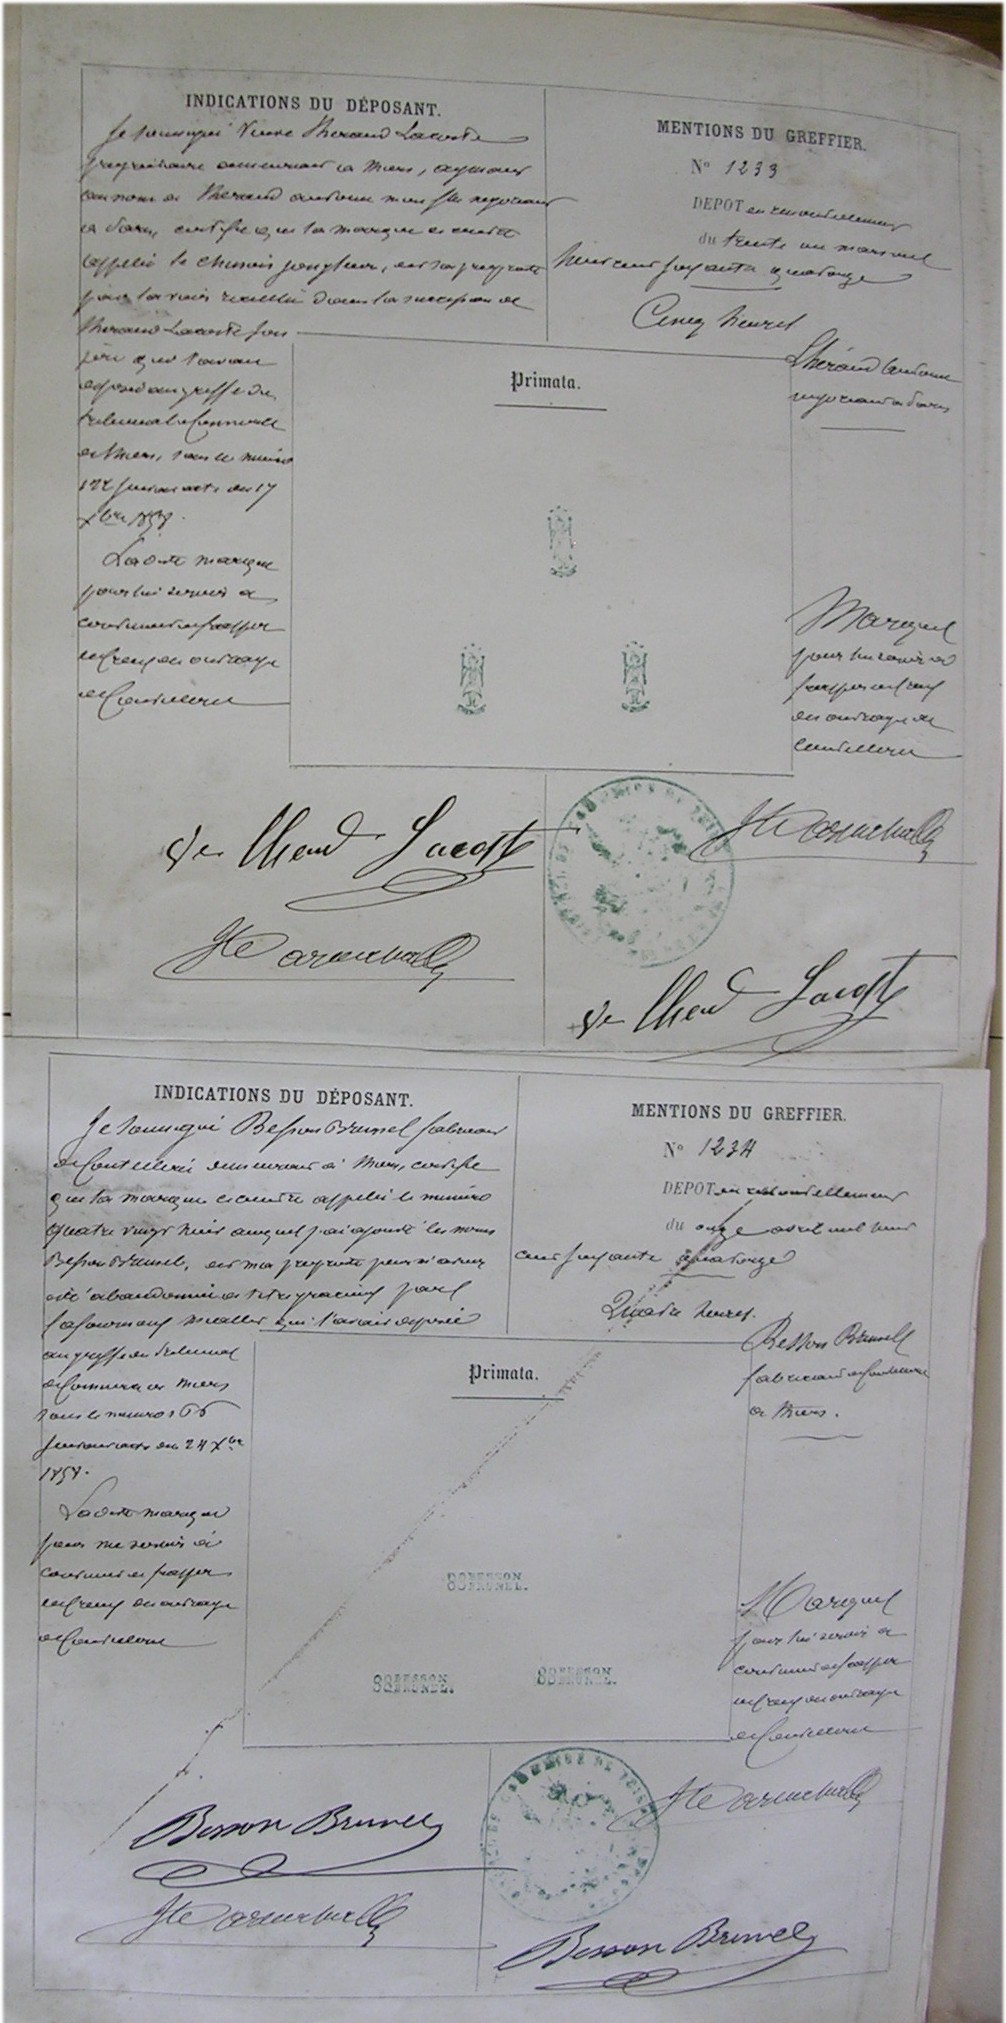 INDICATIONS DU DÉPOSANT.
Je soussigné Veuve Lhéraud Lacoste
propriétaire demeurant à Thiers, agissant
au nom de Lhéraud Antoine mon fils négociant
à Paris, certifie que la marque ci contre
appelée le Chinois jongleur, est sa propriété
pour l'avoir recueillie dans la succession de
Lhéraud Lacoste son
père qui l'avait
déposé au greffe du
tribunal de Commerce
de Thiers, sous le numéro
122 suivant acte du 17
Xbre 1858.
Ladite marque
pour lui servir à
continuer de frapper
en creux ses ouvrages
de Coutellerie
MENTIONS DU GREFFIER.
No 1233
DEPOT en renouvellement
du trente un mars mil
huit cent soixante quatorze
Cinq heures
Primata.
Lhéraud Antoine
négociant à Paris
Marque
pour lui servir à
frapper en creux
ses ouvrages de
Coutellerie
Ve Lheraud Lacoste
Ve Lheraud Lacoste
INDICATIONS DU DÉPOSANT.
Je soussigné Besson Brunel fabricant
de Coutellerie demeurant à Thiers, certifie
que la marque ci contre appelée le numéro
quatre vingt huit auquel j'ai ajouté les noms
Besson Brunel, est ma propriété pour m'avoir
été abandonnée à titre gracieux par
qui l'avait déposée
au greffe du tribunal
de Commerce de Thiers
sous le numéro
suivant acte du 24 Xbre
1858.
Ladite marque
pour me servir à
continuer de frapper
en creux ses ouvrages
de Coutellerie
MENTIONS DU GREFFIER.
No 1234
DEPOT en renouvellement
du onze avril mil huit
cent soixante quatorze
Quatre heures.
Primata.
Besson Brunel
fabricant de Coutellerie
à Thiers.
88 BESSON BRUNEL.
88 BESSON BRUNEL.
88 BESSON BRUNEL.
Marque
pour lui servir à
continuer de frapper
en creux ses ouvrages
de Coutellerie
Besson Brunel
Besson Brunel